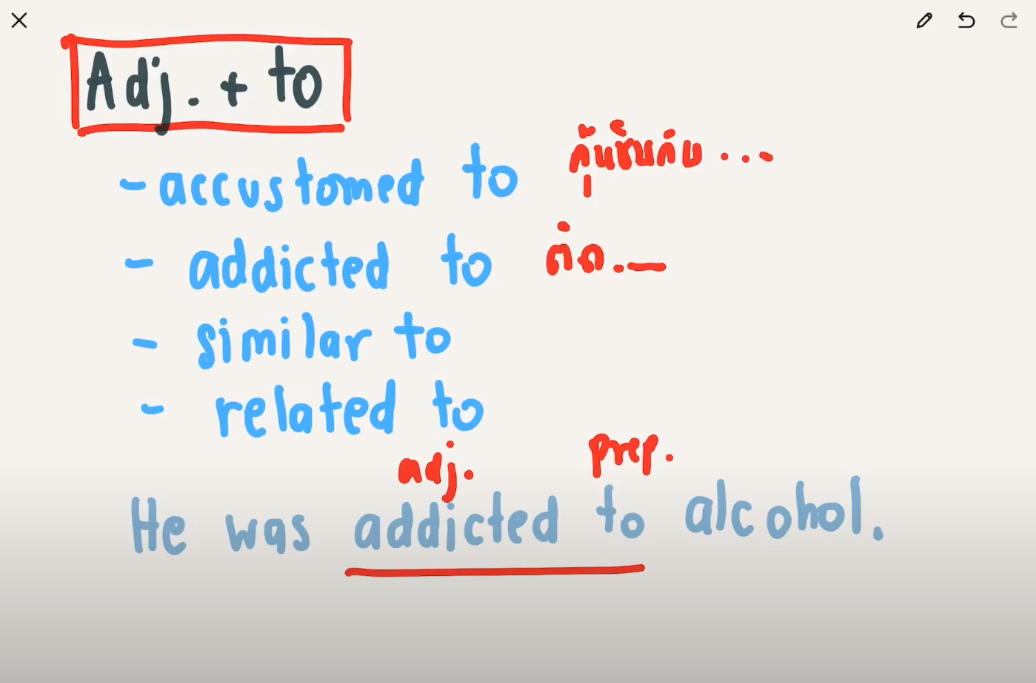 Adj. + to
- accustomed to คุ้นชินกับ...
- addicted to ติด...
- similar to
- related to
adj. prep.
He was addicted to alcohol.